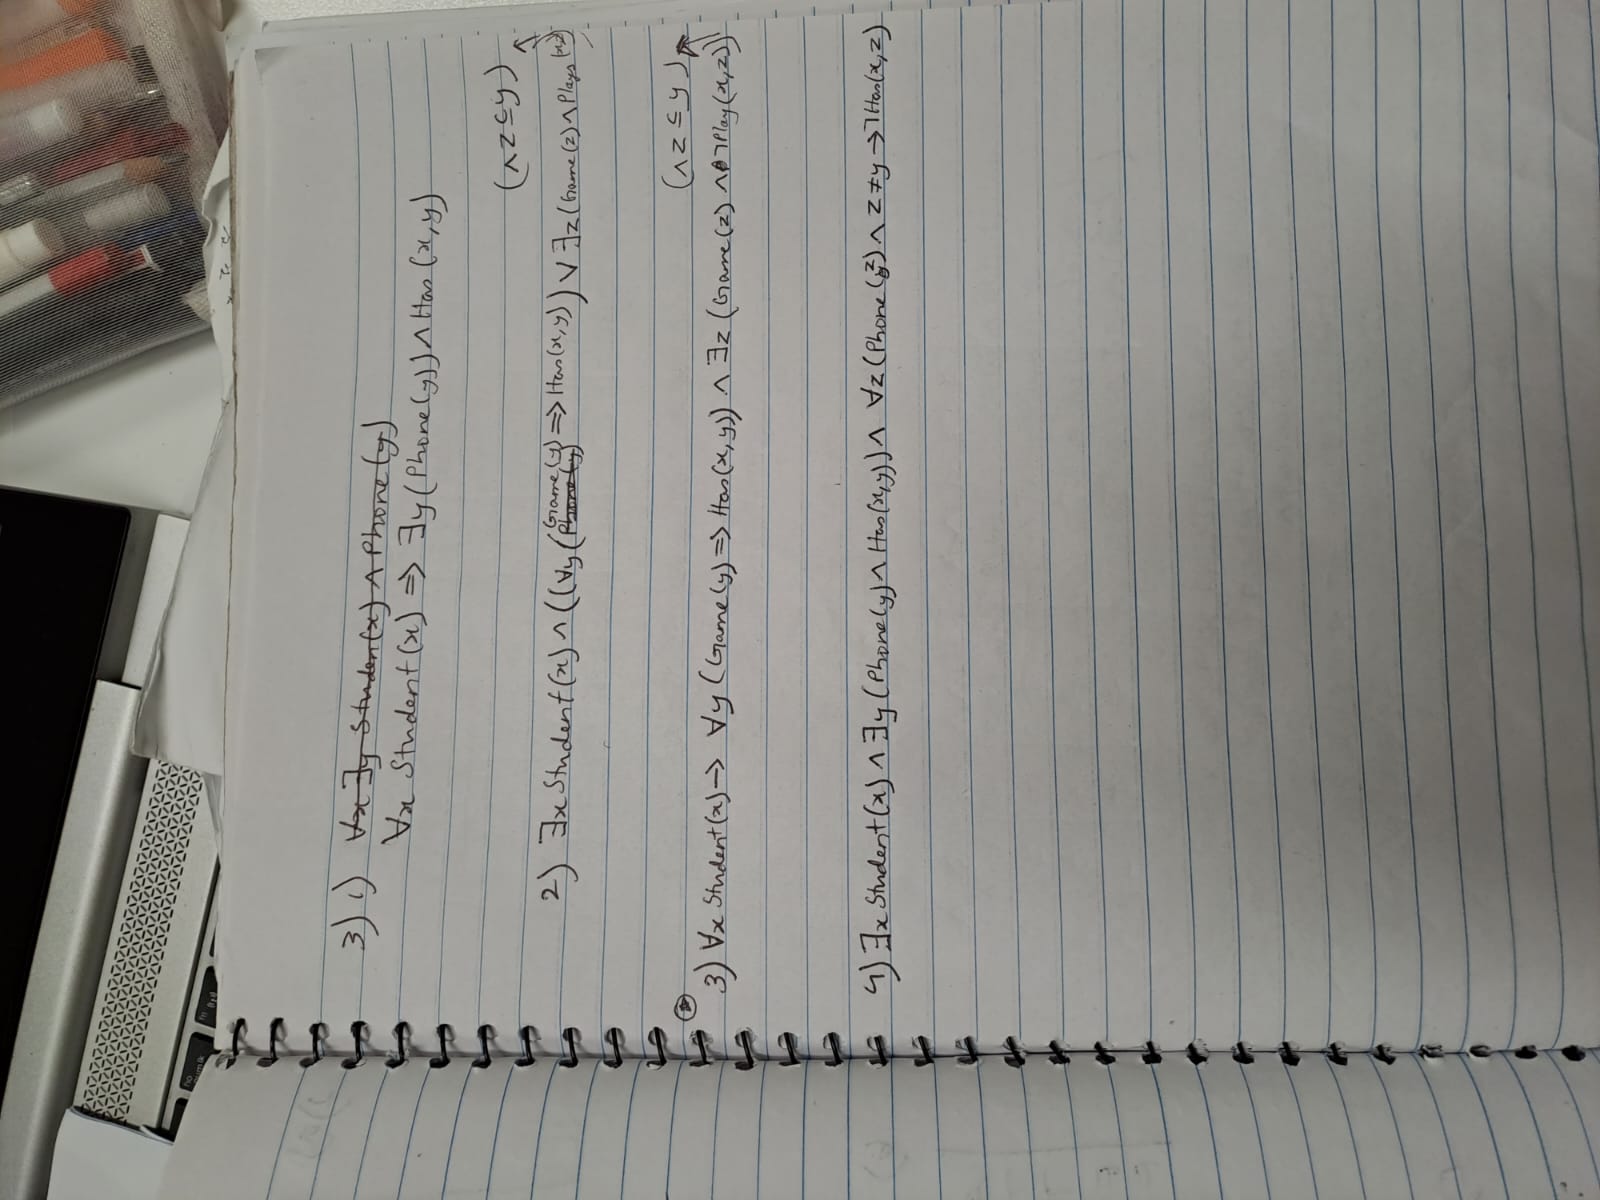 3) 1) ∀x ∃y Student(x) ∧ Phone(y)
∀x Student(x) => ∃y(Phone(y)) ∧ Has(x,y)
(∧ z ⊆ y)
2) ∃x Student(x) ∧ ((∀y(Phone(y) Game(y) => Has(x,y)) ∨ ∃z(Game(z) ∧ Plays(x,z))
(∧ z ⊆ y)
3) ∀x Student(x) → ∀y(Game(y) => Has(x,y)) ∧ ∃z (Game(z) ∧ ¬Play(x,z))
4) ∃x Student(x) ∧ ∃y(Phone(y) ∧ Has(x,y)) ∧ ∀z(Phone(z) ∧ z ≠ y → ¬Has(x,z)